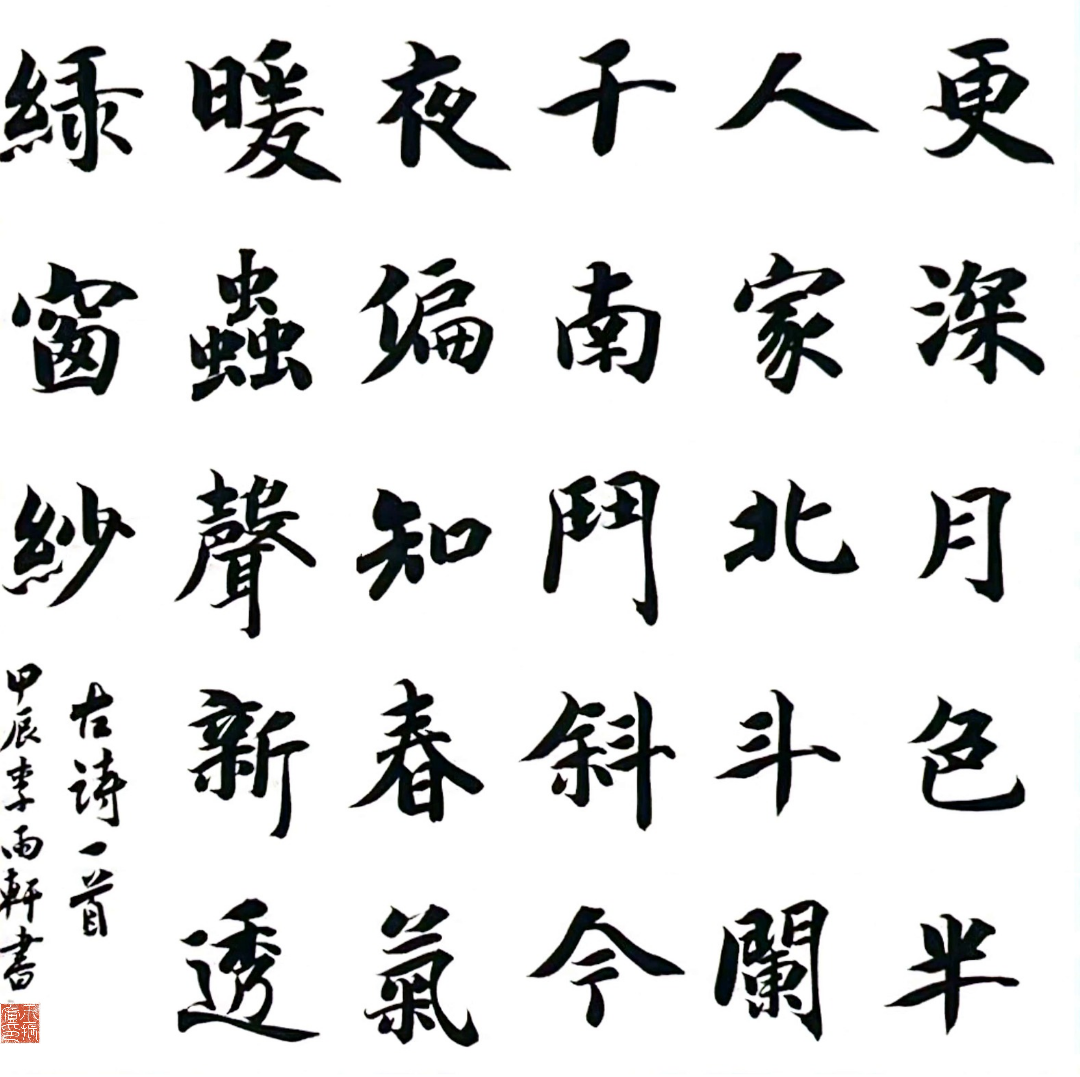 更深月色半
人家北斗闌
干南鬥斜今
夜偏知春氣
暖蟲聲新透
綠窗紗
古詩一首
甲辰李雨軒書